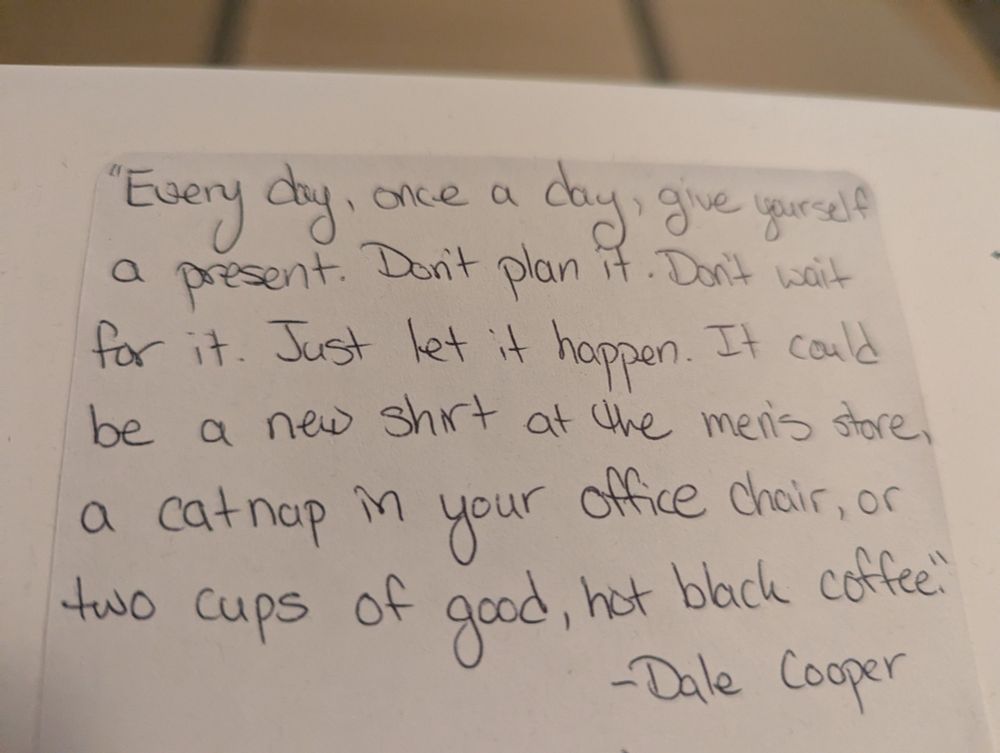 "Every day, once a day, give yourself
a present. Don't plan it. Don't wait
for it. Just let it happen. It could
be a new shirt at the men's store,
a catnap in your office chair, or
two cups of good, hot black coffee."
-Dale Cooper